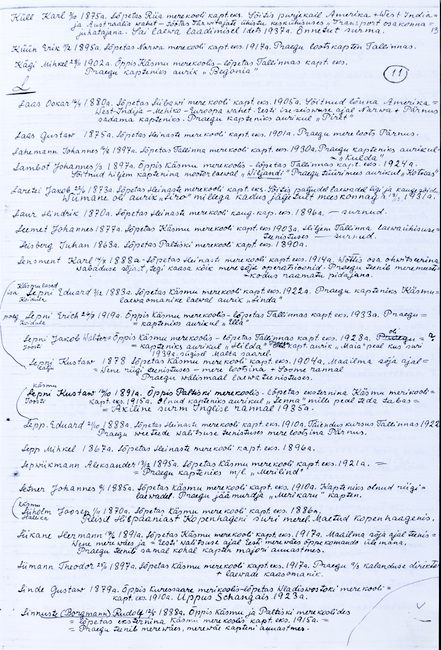 Küll Karl 1875a. Lõpetas Riia merekooli kapt.eks. Sõitis purjekail Ameerika, West India
ja Austraalia vahet
juhatajana. Sai laewa laadimisel 1937a. Õnnetut surma.
Küün Erik 1895a. Lõpetas Narwa merekooli kapt.eks 1917a. Praegu lootskapten Tallinnas.
Kägi Mihkel 1902a. Õppis Käsmu merekoolis - lõpetas Tallinnas kapt.eks.
Praegu kapteniks aurik „Begonia"
11
L
Laas Oskar 1880a. Lõpetas Liibawi merekooli kapt.eks 1905a. Sõitnud Lõuna Ameerika =
West-India - Mehiko - Euroopa wahet. Eesti ise seiswuse ajal Narwa + Pärnu
sadama kapteniks. Praegu kapteniks aurikul „Piret"
Laas Gustaw 1875a. Lõpetas Heinaste merekooli kapt.eks. 1901a. Praegu mere loots Pärnus.
Lahemann Johannes 1897a. Lõpetas Tallinna merekooli kapt.eks 1930a. Praegu kapteniks aurikul
= „Kulda"
Lambot Johannes 1897a. Õppis Käsmu merekoolis - lõpetas Tallinnas kapt.eks. 1924a.
Sõitnud hiljem kaptenina mootorlaewal „Wiljandi" Praegu tüürimees aurikul „Kotkas"
Laretei Jakob 1873a Lõpetas Heinaste merekooli kapt.eks. Sõitis paljudel laewadel ligi ja kaugesõidus
Wiimane oli aurik „Eiro" millega kadus jäljetult meeskonnaga 1931a.
Laur Hindrik 1870a. Lõpetas Heinaste merekooli kaug.kapt.eks. 1896a. — surnud.
Leemet Johannes 1877a. Lõpetas Käsmu merekooli kapt.eks 1903a Hiljem Tallinna laewaühisuse
teenistuses — surnud.
Leisberg Juhan 1863a. Lõpetas Paldiski merekooli kapt.eks 1890a.
Lensment Karl 1888a - Lõpetas Heinaste merekooli kapt.eks 1914a. Wõttis osa ohwitserina
wabaduse sõjast, tegi kaasa kõik mere sõja operatsioonid. Praegu teenib meremeeste
= Kodus raamatu pidajana.
Lepni Eduard 1883a. Lõpetas Käsmu merekooli kapt.eks 1922a. Praegu kapteniks Käsmu
laewaomanike laewal aurik „Linda"
poeg Lepni Erich 1919a. Õppis Käsmu merekoolis - lõpetas Tallinnas kapt.eks 1933a. Praegu
= kapteniks aurikul „Ella"
Lepni Jakob Walter Õppis Käsmu merekoolis - lõpetas Tallinnas kapt.eks. 1928a.
kapteniks aurikul „Hilda" kapt.aurik „Maia" peal kus suri
1939a. sügisel Malta saarel.
Lepni Kustaw 1878 Lõpetas Käsmu merekooli kapt.eks. 1904a. Maailma sõja ajal =
= Wene riigi teenistuses - mere lootsina + Soome rannal
Praegu wälismaal laewa teenistuses.
Lepni Kustaw 1891a. Õppis Paldiski merekoolis - lõpetas eksternina Käsmu merikooli =
kapt.eks 1915a. Olnud kapteniks aurikul „Lenna" mille peal teda tabas =
= Äkiline surm Inglise rannal 1935a.
Lepp Eduard 1888a. Lõpetas Heinaste merekooli kapt.eks. 1910a. Täiendus kursus Tallinnas 1922
Praegu weeteede walitsuse teenistuses mere lootsina Pärnus.
Lepp Mihkel 1867a. Lõpetas Heinaste merekooli kapt.eks 1896a.
Lepwikmann Aleksander 1895a. Lõpetas Käsmu merekooli kapt.eks. 1921a. =
= Praegu kapteniks m/l. „Merilind"
Leüner Johannes 1885a. Lõpetas Käsmu merekooli kapt.eks. 1910a. Kapteniks olnud riigi =
laewadel. Praegu jäämurdja „Merikaru" kapten.
Liiholm Joosep 1870a. Lõpetas Käsmu merekooli kapt.eks 1886a.
Reisil Hispaaniast Kopenhageni suri merel. Maetud Kopenhaagenis.
Liikane Hermann 1891a. Lõpetas Käsmu merekooli kapt.eks. 1917a. Maailma sõja ajal teenis =
Wene merewäes ja - Eesti wabaduse ajal Eesti merewäes õppekomando ülemana.
Praegu teenib samal kohal kapten majori auastmes.
Liimann Theodor 1897a. Lõpetas Käsmu merekooli kapt.eks 1917a. Praegu kalanduse direktor
+ laewade kaasomanik.
Linde Gustaw 1879a. Õppis Kuressaare merikoolis - lõpetas Wladiwostoki merekooli =
kapt.eks 1910a. Uppus Schangais 1923a.
Linnuste (Borgmann) Rudolf 1888a. Õppis Käsmu ja Paldiski merekoolides
= lõpetas eksternina Käsmu merekoolis kapt.eks. 1915a. =
= Praegu teenib merewäes, merewäe kapteni auastmes.